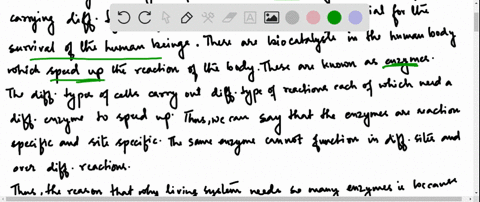 carrying diff. for the
survival of the human beings. There are biocatalysts in the human body
which speed up the reaction of the body. These are known as enzymes.
The diff. types of cells carry out diff. type of reactions each of which need a
diff. enzyme to speed up. Thus, we can say that the enzymes are reaction
specific and site specific. The same enzyme cannot function in diff. sites and
over diff. reactions.
Thus, the reason that why living system needs so many enzymes is because